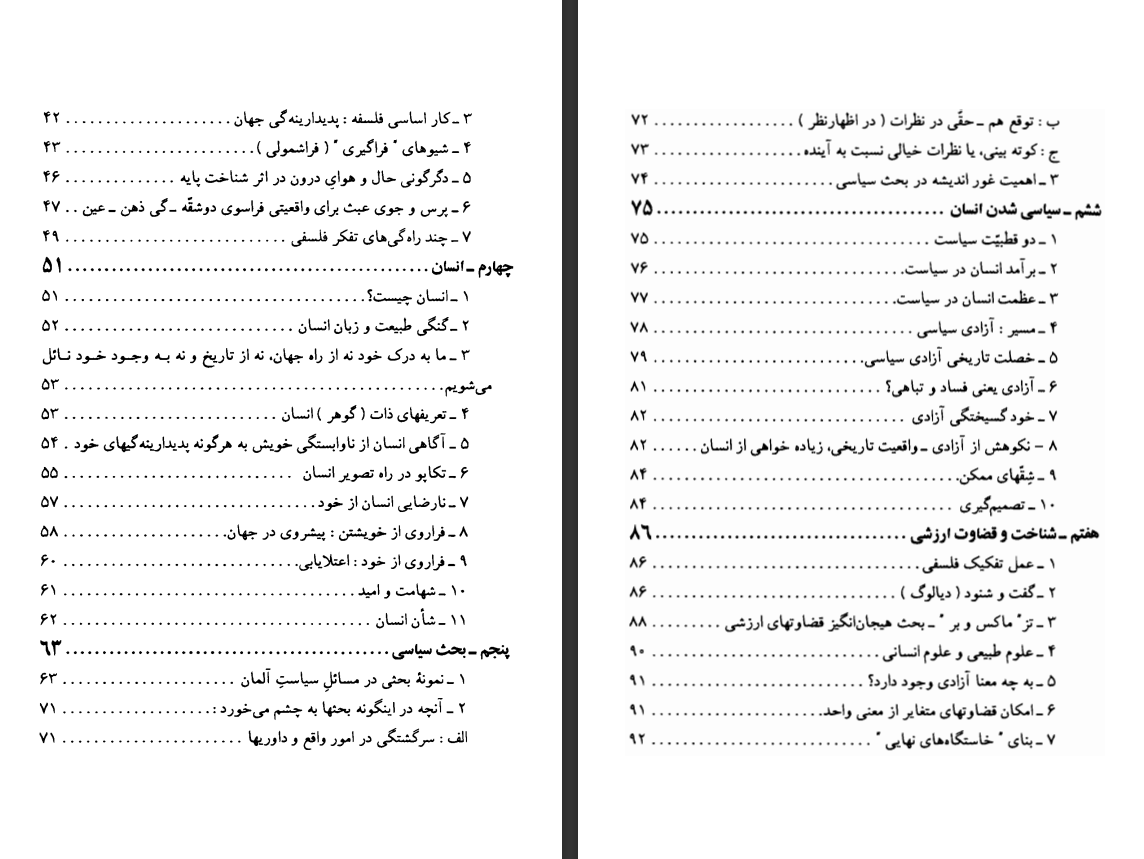 ۳ ـ کار اساسی فلسفه : پدیدارینه‌گی جهان . . . . . . . . . . . . . . . . . . . . . ۴۲
۴ ـ شیوهای " فراگیری " ( فراشمولی ) . . . . . . . . . . . . . . . . . . . . . . . . ۴۳
۵ ـ دگرگونی حال و هوایِ درون در اثر شناخت پایه . . . . . . . . . . . . . . ۴۶
۶ ـ پرس و جوی عبث برای واقعیتی فراسوی دوشقّه ـ گی ذهن ـ عین . . ۴۷
۷ ـ چند راه‌گی‌های تفکر فلسفی . . . . . . . . . . . . . . . . . . . . . . . . . . . . ۴۹
چهارم ـ انسان . . . . . . . . . . . . . . . . . . . . . . . . . . . . . . . . . . . . . . . . . . . . . . . ۵۱
۱ ـ انسان چیست؟ . . . . . . . . . . . . . . . . . . . . . . . . . . . . . . . . . . . . . . ۵۱
۲ ـ گنگی طبیعت و زبان انسان . . . . . . . . . . . . . . . . . . . . . . . . . . . . . ۵۲
۳ ـ ما به درک خود نه از راه جهان، نه از تاریخ و نه بـه وجـود خـود نـائل
می‌شویم. . . . . . . . . . . . . . . . . . . . . . . . . . . . . . . . . . . . . . . . . . . . . . . . ۵۳
۴ ـ تعریفهای ذات ( گوهر ) انسان . . . . . . . . . . . . . . . . . . . . . . . . . . . ۵۳
۵ ـ آگاهی انسان از ناوابستگی خویش به هرگونه پدیدارینه‌گیهای خود . ۵۴
۶ ـ تکاپو در راه تصویر انسان . . . . . . . . . . . . . . . . . . . . . . . . . . . . . ۵۵
۷ ـ نارضایی انسان از خود . . . . . . . . . . . . . . . . . . . . . . . . . . . . . . . . ۵۷
۸ ـ فراروی از خویشتن : پیشروی در جهان. . . . . . . . . . . . . . . . . . . . . ۵۸
۹ ـ فراروی از خود : اعتلایابی. . . . . . . . . . . . . . . . . . . . . . . . . . . . . . ۶۰
۱۰ ـ شهامت و امید . . . . . . . . . . . . . . . . . . . . . . . . . . . . . . . . . . . . . ۶۱
۱۱ ـ شأن انسان . . . . . . . . . . . . . . . . . . . . . . . . . . . . . . . . . . . . . . . ۶۲
پنجم ـ بحث سیاسی . . . . . . . . . . . . . . . . . . . . . . . . . . . . . . . . . . . . . . . . . . ۶۳
۱ ـ نمونهٔ بحثی در مسائلِ سیاستِ آلمان . . . . . . . . . . . . . . . . . . . . . . ۶۳
۲ ـ آنچه در اینگونه بحثها به چشم می‌خورد : . . . . . . . . . . . . . . . . . . . ۷۱
الف : سرگشتگی در امور واقع و داوریها . . . . . . . . . . . . . . . . . . . . . . . ۷۱
ب : توقع هم ـ حقّی در نظرات ( در اظهارنظر ) . . . . . . . . . . . . . . . . . . ۷۲
ج : کوته بینی، یا نظرات خیالی نسبت به آینده . . . . . . . . . . . . . . . . . . . ۷۳
۳ ـ اهمیت غور اندیشه در بحث سیاسی . . . . . . . . . . . . . . . . . . . . . . . ۷۴
ششم ـ سیاسی شدن انسان . . . . . . . . . . . . . . . . . . . . . . . . . . . . . . . . . . . . . . ۷۵
۱ ـ دو قطبیّت سیاست . . . . . . . . . . . . . . . . . . . . . . . . . . . . . . . . . . . ۷۵
۲ ـ برآمد انسان در سیاست. . . . . . . . . . . . . . . . . . . . . . . . . . . . . . . . . ۷۶
۳ ـ عظمت انسان در سیاست. . . . . . . . . . . . . . . . . . . . . . . . . . . . . . . . ۷۷
۴ ـ مسیر : آزادی سیاسی . . . . . . . . . . . . . . . . . . . . . . . . . . . . . . . . . ۷۸
۵ ـ خصلت تاریخی آزادی سیاسی. . . . . . . . . . . . . . . . . . . . . . . . . . . . ۷۹
۶ ـ آزادی یعنی فساد و تباهی؟ . . . . . . . . . . . . . . . . . . . . . . . . . . . . . ۸۱
۷ ـ خود گسیختگی آزادی . . . . . . . . . . . . . . . . . . . . . . . . . . . . . . . . ۸۲
۸ – نکوهش از آزادی ـ واقعیت تاریخی، زیاده خواهی از انسان . . . . . . ۸۲
۹ ـ شِقّهای ممکن. . . . . . . . . . . . . . . . . . . . . . . . . . . . . . . . . . . . . . . . ۸۴
۱۰ ـ تصمیم‌گیری . . . . . . . . . . . . . . . . . . . . . . . . . . . . . . . . . . . . . . ۸۴
هفتم ـ شناخت و قضاوت ارزشی . . . . . . . . . . . . . . . . . . . . . . . . . . . . . . . . . . ۸۶
۱ ـ عمل تفکیک فلسفی . . . . . . . . . . . . . . . . . . . . . . . . . . . . . . . . . . ۸۶
۲ ـ گفت و شنود ( دیالوگ ) . . . . . . . . . . . . . . . . . . . . . . . . . . . . . . . ۸۶
۳ ـ تز " ماکس و بر " ـ بحث هیجان‌انگیز قضاوتهای ارزشی . . . . . . . . . ۸۸
۴ ـ علوم طبیعی و علوم انسانی . . . . . . . . . . . . . . . . . . . . . . . . . . . . . ۹۰
۵ ـ به چه معنا آزادی وجود دارد؟ . . . . . . . . . . . . . . . . . . . . . . . . . . . ۹۱
۶ ـ امکان قضاوتهای متغایر از معنی واحد. . . . . . . . . . . . . . . . . . . . . . ۹۱
۷ ـ بنای " خاستگاه‌های نهایی " . . . . . . . . . . . . . . . . . . . . . . . . . . . . ۹۲